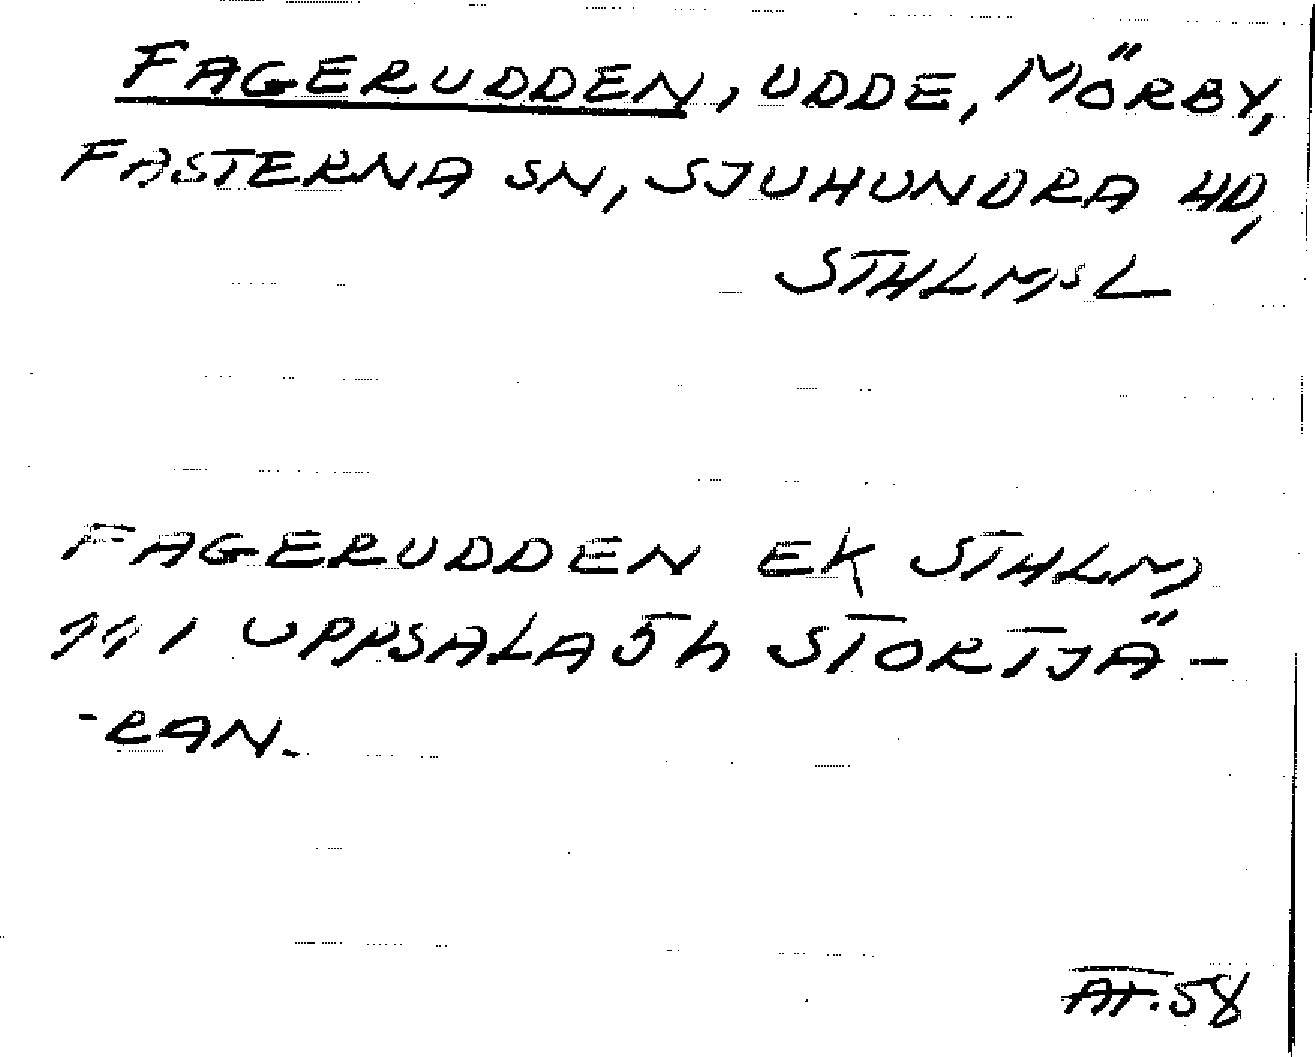 FAGERUDDEN, UDDE, MÖRBY,
FASTERNA SN, SJUHUNDRA HD,
STHLMS L
FAGERUDDEN EK STHLM,
11 1 UPPSALA 5h STORTJÄ-
-RAN.
AT. 58